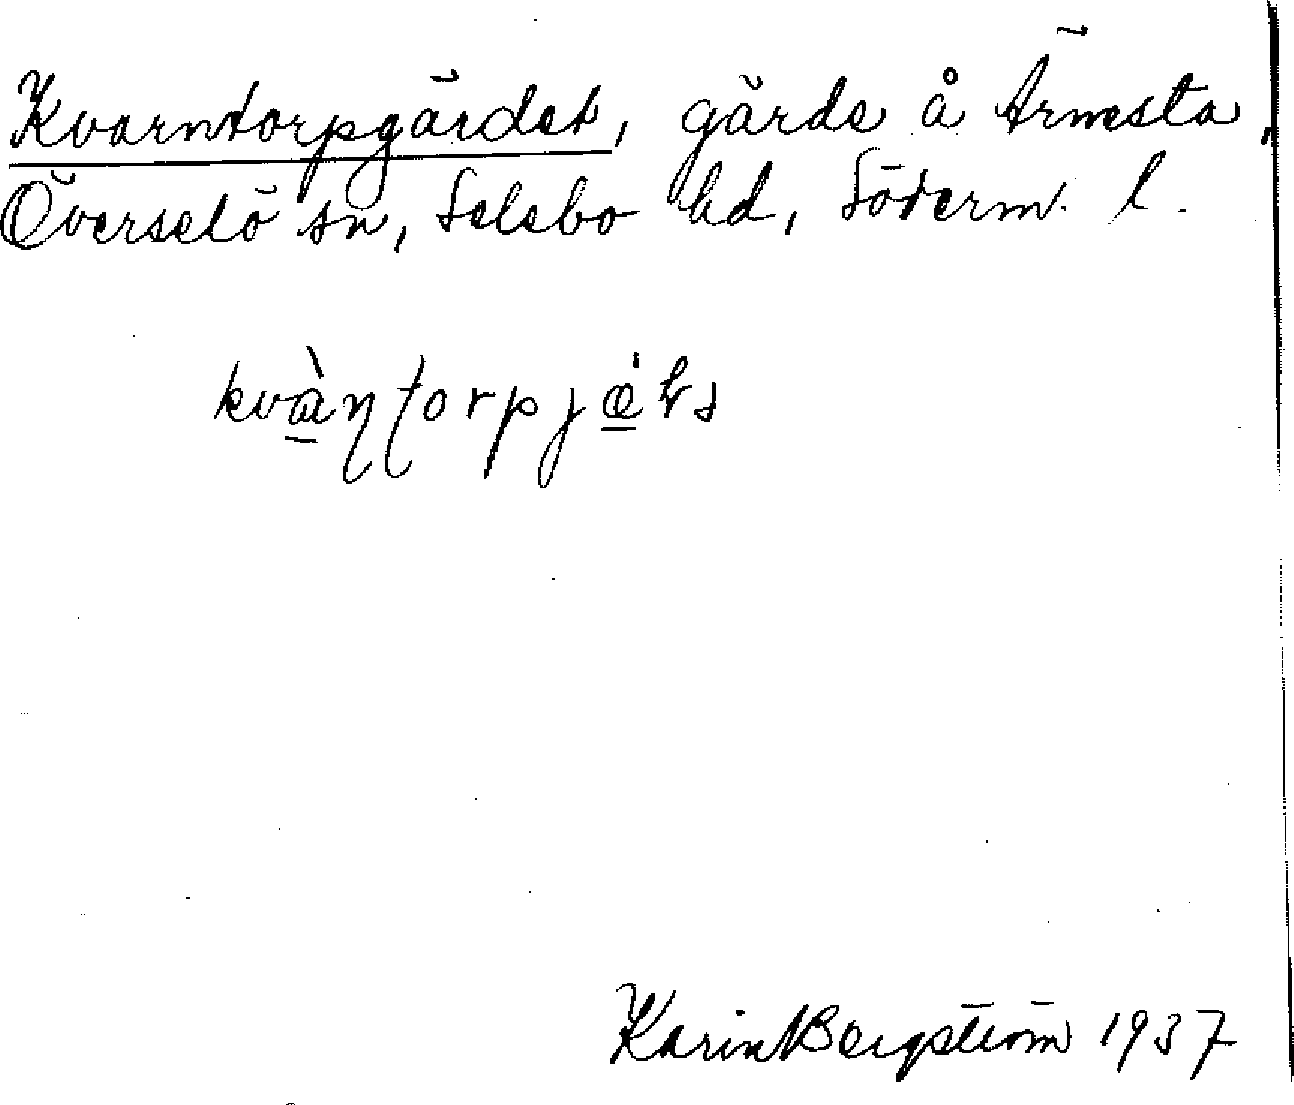 Kvarntorpgärdet, gärde å Ärnesta,
Överselö sn, Selebo hd, Söderm. l.
Karin Bergström 1937